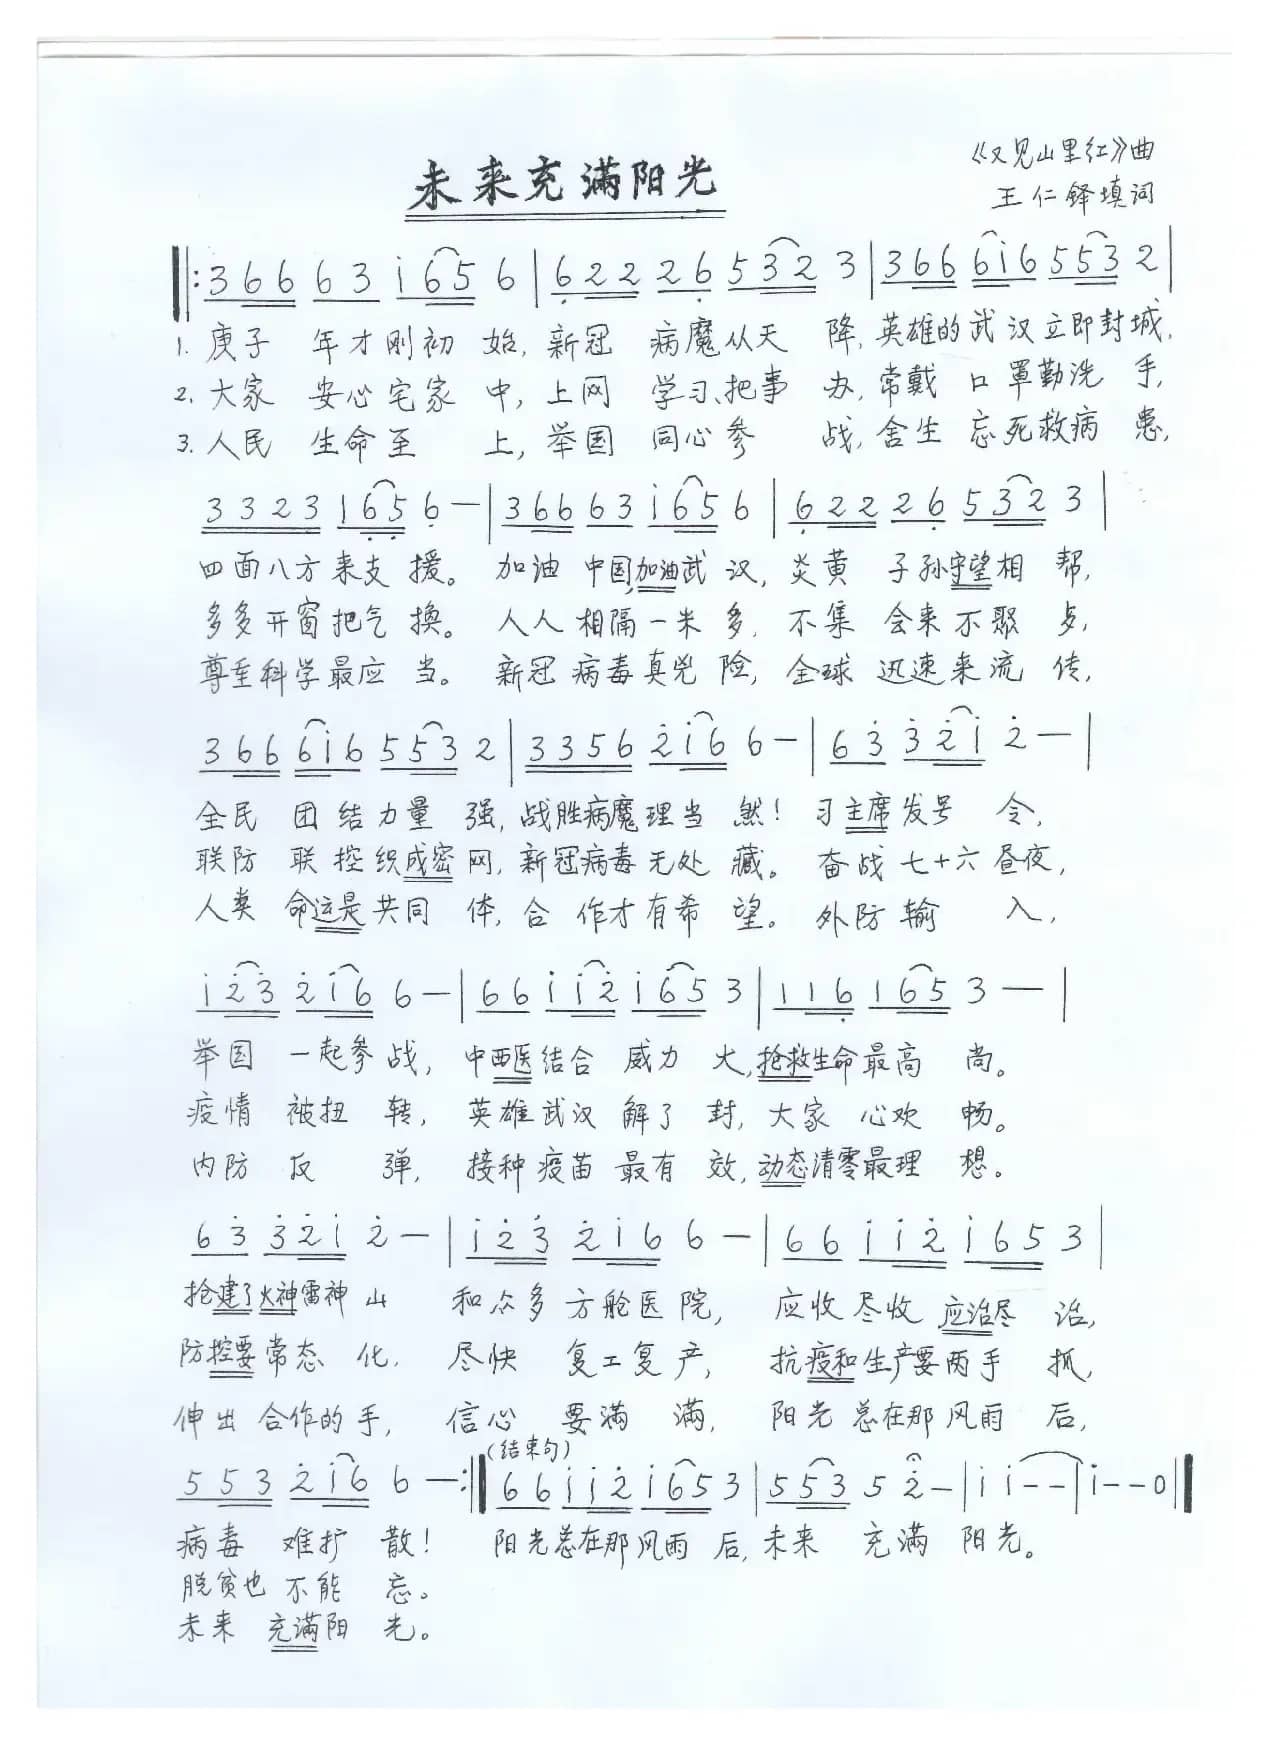 未来充满阳光
《又见山里红》曲
王仁铎填词
‖: 3 6 6 6 3 i 6 5 6 | 6 2 2 2 6 5 3 2 3 | 3 6 6 6 i 6 5 5 3 2 |
1. 庚子 年才刚初 始, 新冠 病魔从天 降, 英雄的武 汉立即封城,
2. 大家 安心宅家 中, 上网 学习、把事 办, 常戴 口罩勤洗 手,
3. 人民 生命至 上, 举国 同心参 战, 舍生 忘死救病 患,
3 3 2 3 1 6 5 6 — | 3 6 6 6 3 i 6 5 6 | 6 2 2 2 6 5 3 2 3 |
四面八方来支 援。 加油 中国,加油武 汉, 炎黄 子孙守望相 帮,
多多开窗把气 换。 人人相隔一米 多, 不集 会来不聚 乡,
尊至科学最应 当。 新冠病毒真兇 险, 全球 迅速来流 传,
3 6 6 6 i 6 5 5 3 2 | 3 3 5 6 2 i 6 6 — | 6 3 3 2 i 2 — |
全民 团结力量 强, 战胜病魔理当 然! 习主席发号 令,
联防 联控织成密网, 新冠病毒无处 藏。 奋战七十六昼夜,
人类 命运是共同 体, 合 作才有希 望。 外防输 入,
i 2 3 2 i 6 6 — | 6 6 i i 2 i 6 5 3 | 1 1 6 1 6 5 3 — |
举国 一起参战, 中西医结合 威力 火,抢救生命最高 尚。
疫情 被扭 转, 英雄武汉 解了 封, 大家 心欢 畅。
内防 反 弹, 接种疫苗 最有 效,动态清零最理 想。
6 3 3 2 i 2 — | i 2 3 2 i 6 6 — | 6 6 i i 2 i 6 5 3 |
抢建了火神雷神 山 和众多方舱医院, 应收尽收 应治尽 治,
防控要常态 化, 尽快 复工复产, 抗疫和生产要两手 抓,
伸出 合作的手, 信心 要满 满, 阳光 总在那风雨 后,
(结束句)
5 5 3 2 i 6 6 — :‖ 6 6 i i 2 i 6 5 3 | 5 5 3 5 2 — | i i - - | i - - 0 ‖
病毒 难扩 散! 阳光总在那风雨 后, 未来 充满 阳光。
脱贫也 不能 忘。
未来 充满阳 光。